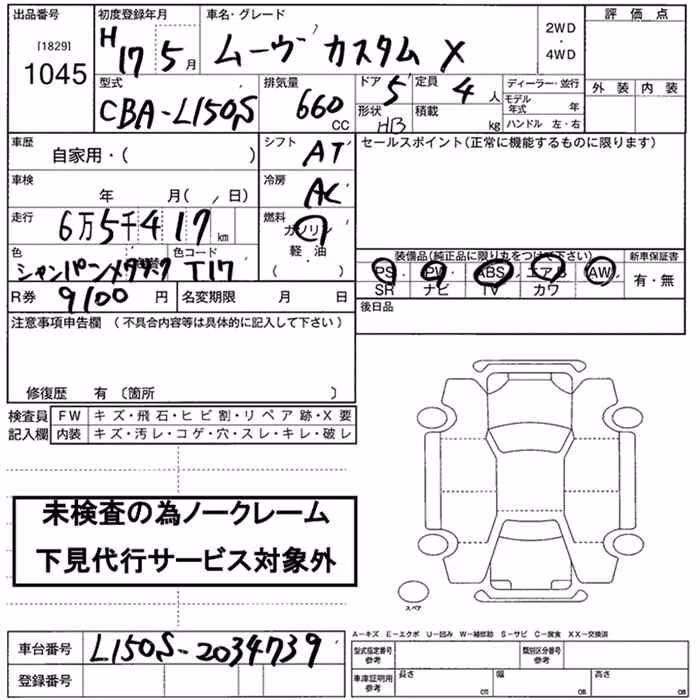 出品番号 初度登録年月 車名・グレード 評価点
[1829]
1045
H 17 5月 ムーヴ カスタム X
2WD
・
4WD
外装 内装
型式 排気量 ドア 定員 ディーラー・並行
CBA-L150S 660 CC 5 4人
モデル年式 年
形状 HB 積載 kg ハンドル 左・右
車歴 シフト セールスポイント(正常に機能するものに限ります)
自家用・( ) AT
車検 冷房
年 月( , 日) AC
走行 燃料
6万5千417km ガソリン
軽・油
( )
色 色コード
シャンパンメタリック T17
装備品(純正品に限り丸をつけて下さい) 新車保証書
PS・PW・ABS・エアB・AW 有・無
SR ナビ TV カワ
R券 9100円 名変期限 月 日 後日品
注意事項申告欄(不具合内容等は具体的に記入して下さい)
修復歴 有(箇所 )
検査員 FW キズ・飛石・ヒビ割・リペア跡・X要
記入欄 内装 キズ・汚レ・コゲ・穴・スレ・キレ・破レ
未検査の為ノークレーム
下見代行サービス対象外
スペア
A-キズ E-エクボ U-凹み W-補修跡 S-サビ C-腐食 XX-交換済
車台番号 L150S-2034739
型式指定番号 参考 類別区分番号 参考
登録番号
車庫証明用 参考 長さ cm 幅 cm 高さ cm